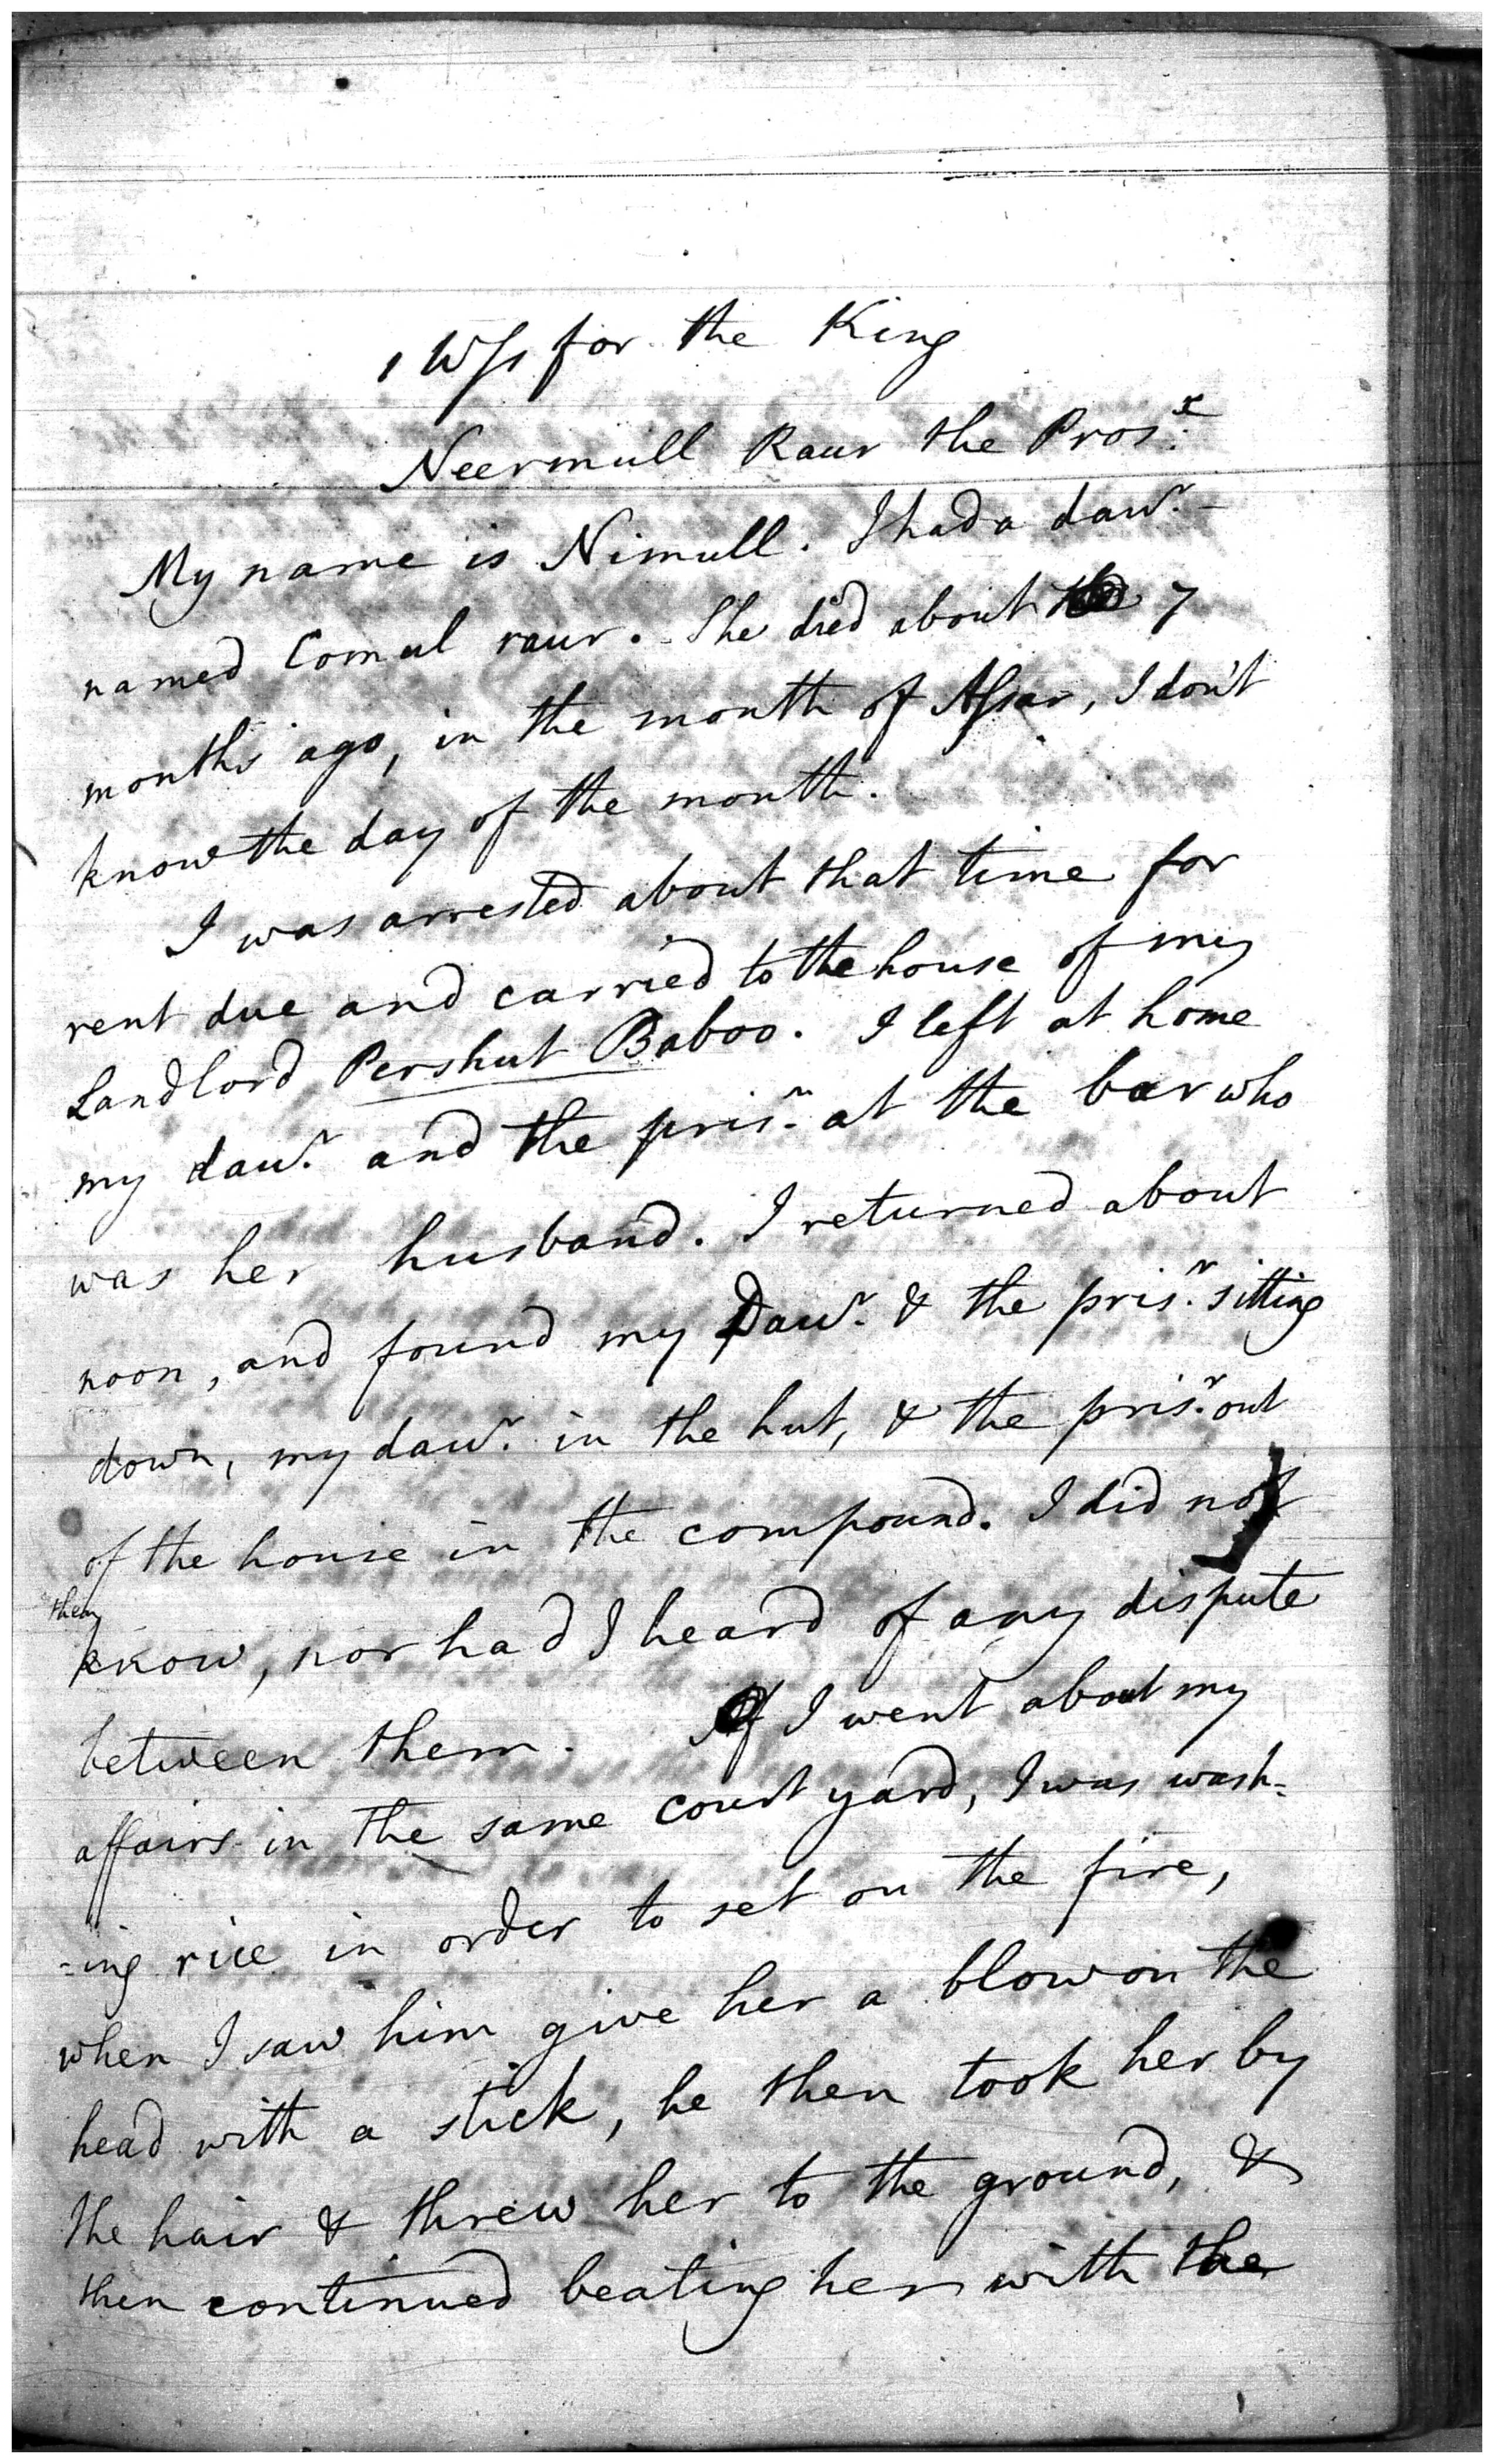 1 Wss for the King
Neermull Raur the Pros.x
My name is Nimull. I had a dawr.
named Comul raur. She died about 7
months ago, in the month of Assar, I don't
know the day of the month.
I was arrested about that time for
rent due and carried to the house of my
Landlord Pershut Baboo. I left at home
my dawr. and the prisr. at the bar who
was her husband. I returned about
noon, and found my Dawr. & the prisr. sitting
down, my dawr. in the hut, & the prisr. out
of the house in the compound. I did not
then
know, nor had I heard of any dispute
between them. I went about my
affairs in the same court yard, I was wash-
-ing rice in order to set on the fire,
when I saw him give her a blow on the
head with a stick, he then took her by
the hair & threw her to the ground, &
then continued beating her with the